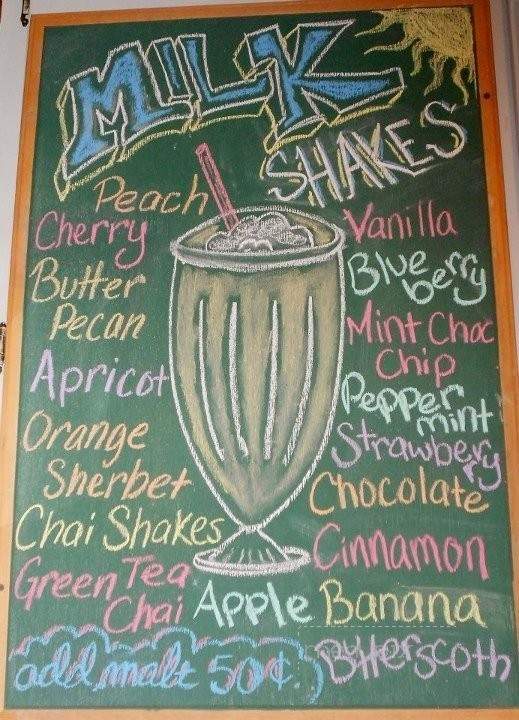 MILK
SHAKES
Peach
Cherry
Butter
Pecan
Apricot
Orange
Sherbet
Chai Shakes
Green Tea
Chai
Vanilla
Blue
berry
Mint Choc
Chip
Pepper
mint
Strawberry
Chocolate
Cinnamon
Apple
Banana
Butterscoth
add malt 50¢